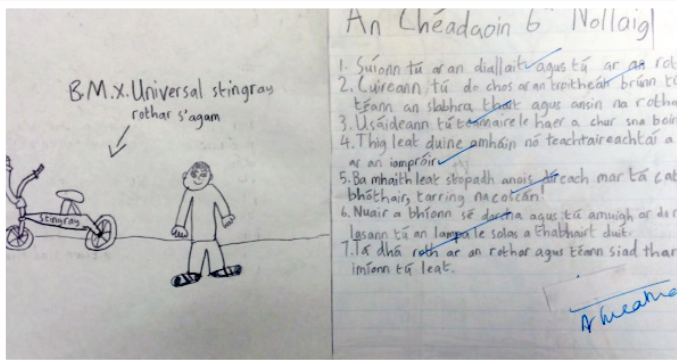 B.M.X. Universal stingray
rothar s'agam
Stingray
An Chéadaoin 6 Nollaig
1. Suíonn tú ar an diallait agus tú ar an rot
2. Cuireann tú do chos ar an troitheán brúnn tú
téann an slabhra thart agus ansin na rotha
3. Úsáideann tú teannaire le haer a chur sna boin
4. Thig leat duine amháin nó teachtaireachtaí a
ar an iompróir
5. Ba mhaith leat stopadh anois díreach mar tá cat
bhóthair, tarring na coscán!
6. Nuair a bhíonn sé dorcha agus tú amuigh ar do r
lasann tú an lampa le solas a thabhairt duit.
7. Tá dhá roth ar an rothar agus téann siad thar
imíonn tú leat.